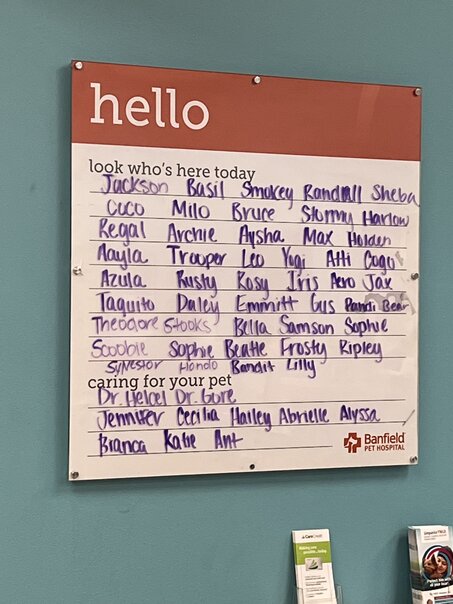 hello
look who's here today
Jackson Basil Smokey Randall Sheba
Coco Milo Bruce Stormy Harlow
Regal Archie Aysha Max Holden
Nayla Trooper Leo Yogi Atti Gogo
Azula Rusty Rosy Iris Aero Jax
Taquito Daley Emmitt Gus Pandi Bear
Theodore Stooks Bella Samson Sophie
Scoobie Sophie Beatie Frosty Ripley
Synestor Hondo Bandit Lilly
caring for your pet
Dr. Heicel Dr. Gore
Jennifer Cecilia Hailey Abrielle Alyssa
Bianca Katie Ant
Banfield
PET HOSPITAL
CareCredit